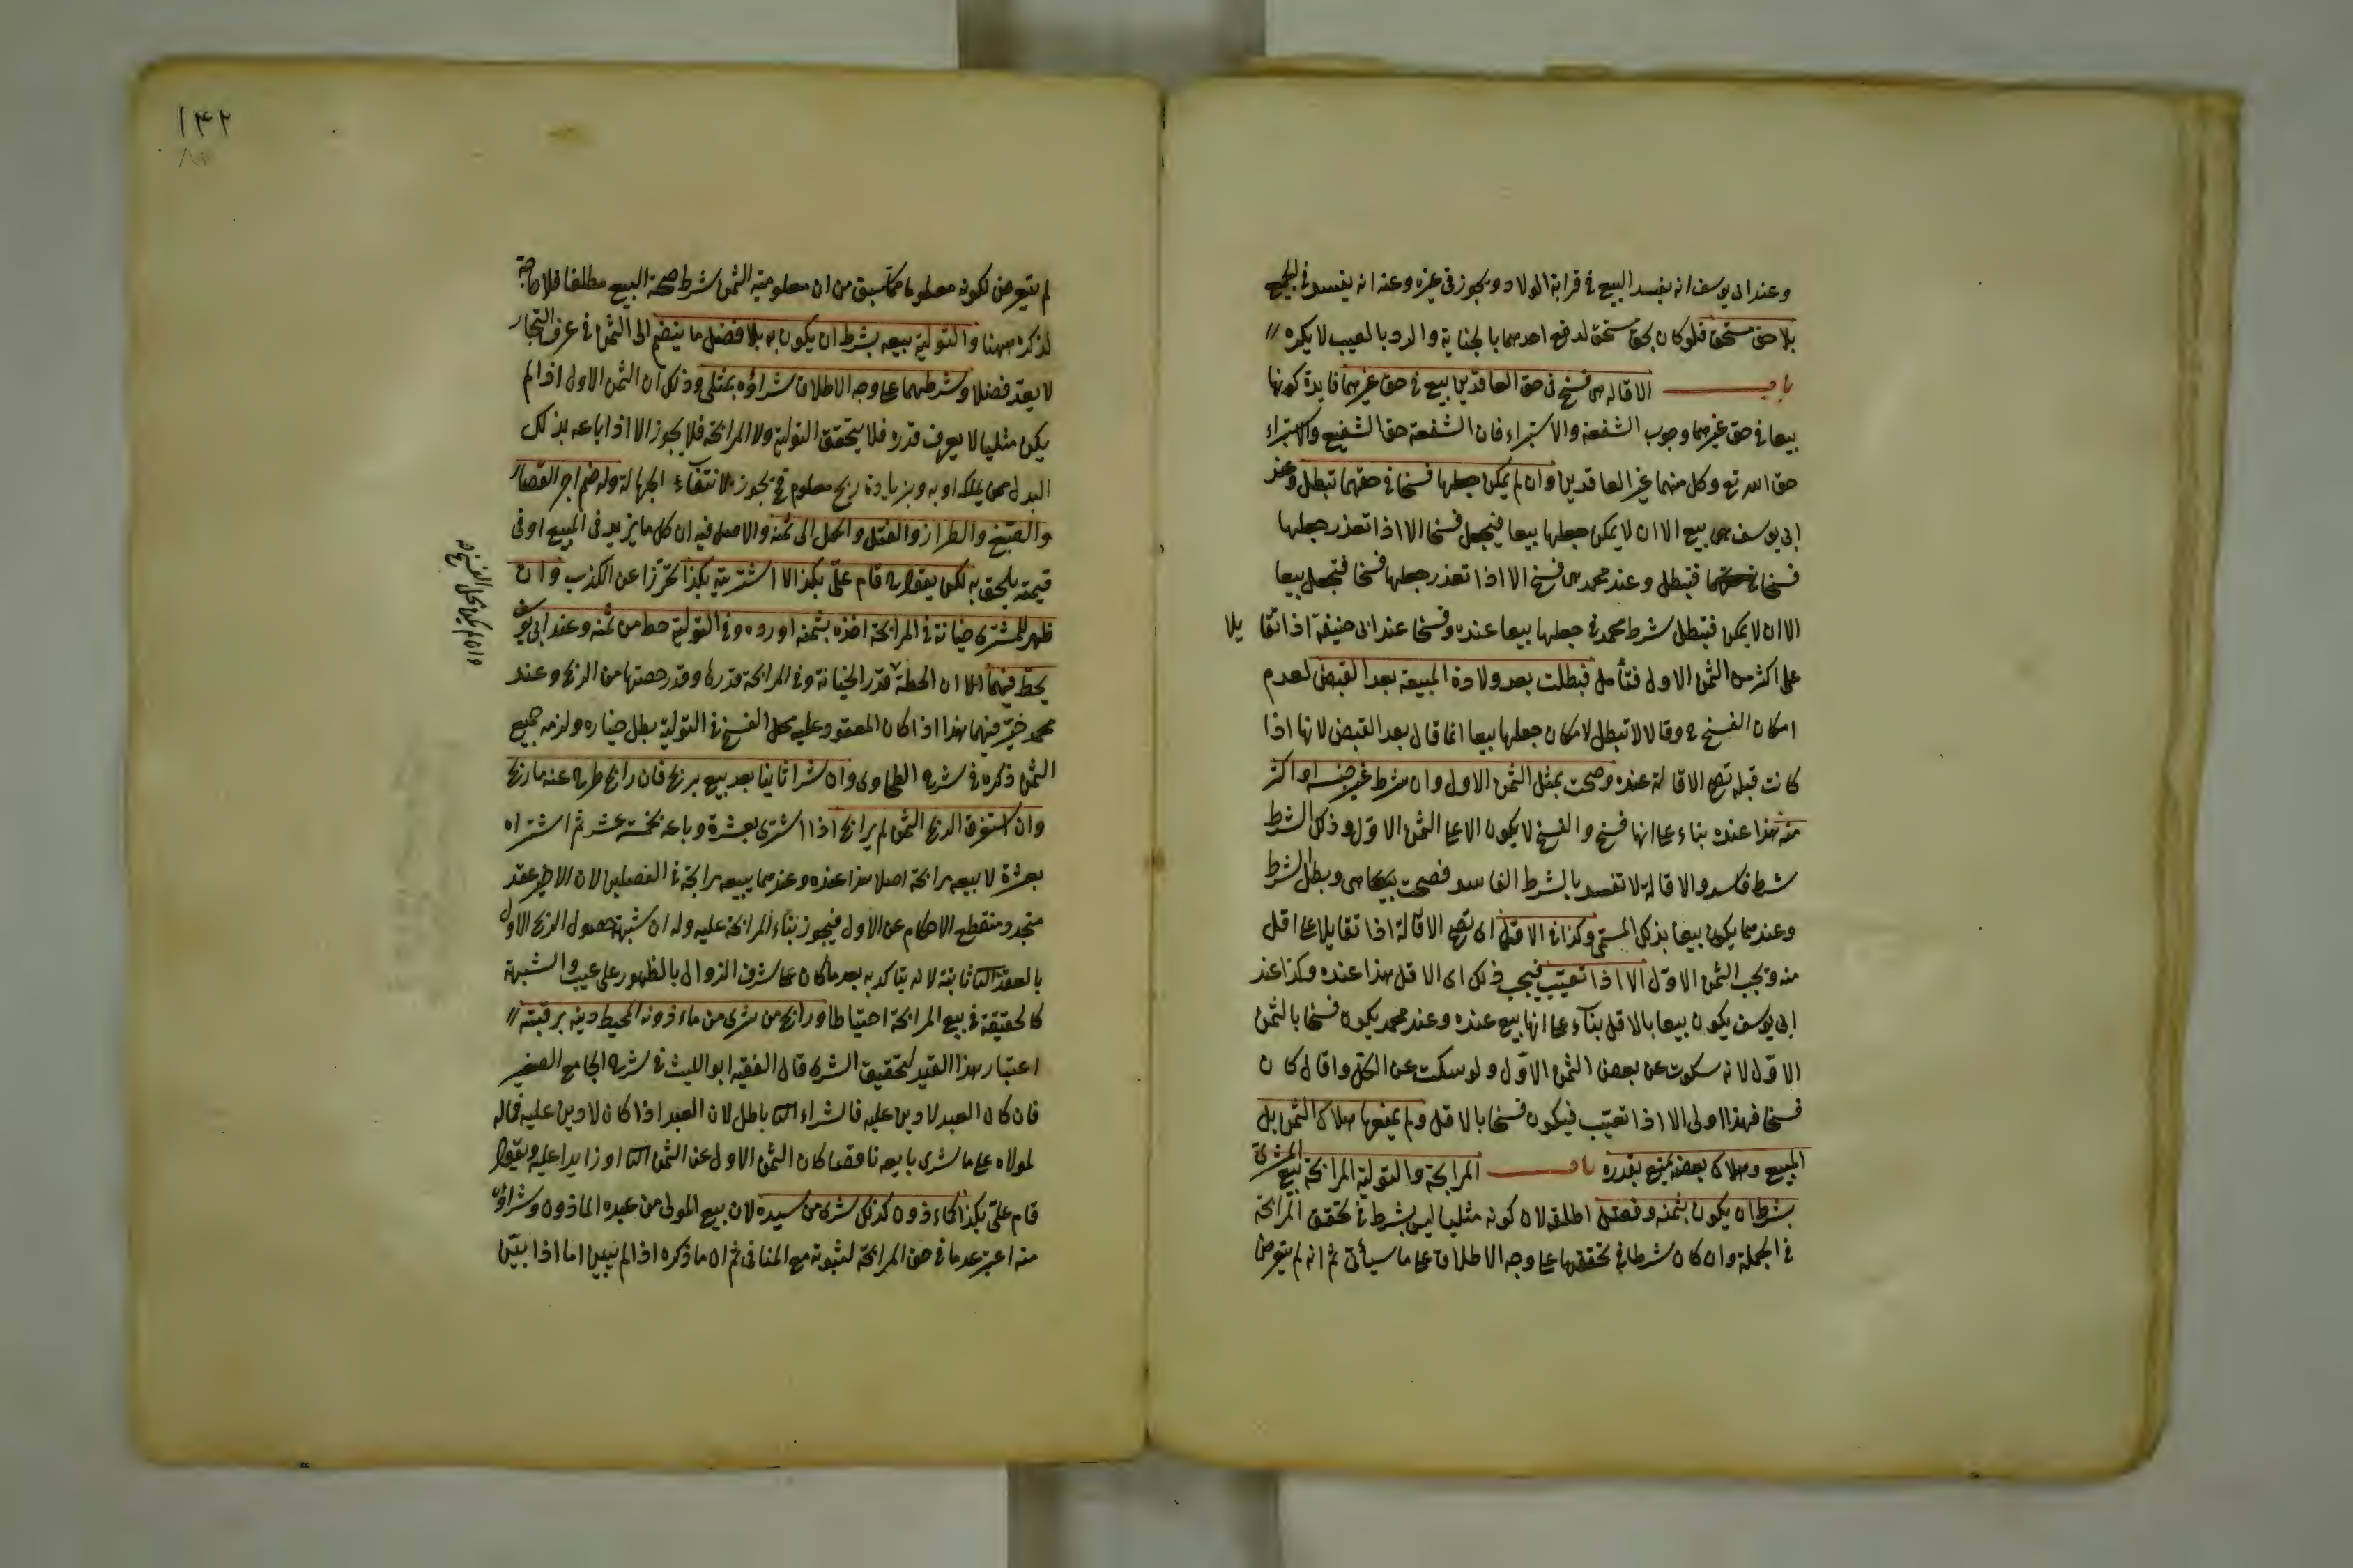 وعند ابى يوسف انه يفسد البيع فى قرابة الولاد ويجوز فى غيره وعنه انه يفسد فى الجميع
بلا حق مستحق فلو كان بحق مستحق كدفع احدهما بالجناية والرد بالعيب لا يكره
باب الاقالة هى فسخ فى حق العاقدين بيع فى حق غيرهما فايدة كونها
بيعا فى حق غيرهما وجوب الشفعة والاستبراء فان الشفعة حق الشفيع والاستبراء
حق الله تع وكل منهما غير العاقدين وان لم يمكن جعلها فسخا فى حقهما تبطل وعند
ابى يوسف هى بيع الا ان لا يمكن جعلها بيعا فيجعل فسخا الا اذا تعذر جعلها
فسخا فتبطل وعند محمد هى فسخ الا اذا تعذر جعلها فسخا فتجعل بيعا
الا ان لا يمكن فتبطل شرط محمد فى جعلها بيعا عنده وفسخا عند ابى حنيفة اذا تقا يلا
على اكثر من الثمن الاول فتأمل فبطلت بعد ولادة المبيعة بعد القبض لعدم
امكان الفسخ ح وقالا لا تبطل لامكان جعلها بيعا انما قال بعد القبض لانها اذا
كانت قبله تصح الاقالة عنده وصحت بمثل الثمن الاول وان شرط غير جنسه او اكثر
منه هذا عنده بناء على انها فسخ والفسخ لا يكون الا على الثمن الاول وذكر الشرط
شرط فاسد والاقالة لا تفسد بالشرط الفاسد فصحت هى وبطل الشرط
وعندهما يكون بيعا بذلك المسمى وكذا فى الاقل اى تصح الاقالة اذا تقايلا على اقل
منه ويجب الثمن الاول الا اذا تعيب فيجب ذلك اى الاقل هذا عنده وكذا عند
ابى يوسف يكون بيعا بالاقل بناء على انها بيع عنده وعند محمد يكون فسخا بالثمن
الاول لانه سكوت عن بعض الثمن الاول ولو سكت عن الكل واقال كان
فسخا فهذا اولى الا اذا تعيب فيكون فسخا بالاقل ولم يمنعها هلاك الثمن بل
المبيع وهلاك بعضه يمنع بقدره باب المرابحة والتولية المرابحة بيع المشترى
بشرط ان يكون بثمنه وفضل اطلقه لان كونه مثليا ليس بشرط فى تحقق المرابحة
فى الجملة وان كان شرطا فى تحققها على وجه الاطلاق على ما سيأتى ثم انه لم يتعرض
١٤٢
لم يتعرض لكونه معلوما مما سبق من ان معلومية الثمن شرط صحة البيع مطلقا فلا حاجة
لذكره ههنا والتولية بيعه بشرط ان يكون به بلا فضل ما ينضم الى الثمن فى عرف التجار
لا يعد فضلا وشرطهما على وجه الاطلاق شراؤه بمثلى وذلك ان الثمن الاول اذا لم
يكن مثليا لا يعرف قدره فلا يتحقق التولية ولا المرابحة فلا يجوز الا اذا باعه بذلك
البدل ممن يملكه او به وبزيادة ربح معلوم فح يجوز لانتفاء الجهالة وله ضم اجر القصار
والصبغ والطراز والفتل والحمل الى ثمنه والاصل فيه ان كل ما يزيد فى المبيع او فى
قيمته يلحق به لكن يقول قام على بكذا لا اشتريته بكذا تحرزا عن الكذب وان
ظهر للمشترى خيانة فى المرابحة اخذه بثمنه او رده وفى التولية حط من ثمنه وعند ابى يوسف
يحط فيهما الا ان الحط قدر الخيانة وفى المرابحة قدرها وقدر حصتها من الربح وعند
محمد خير فيهما هذا اذا كان المعقود عليه محل الفسخ فى التولية بطل خياره ولزمه جميع
وان لم يكن محل الفسخ صح
الثمن ذكره فى شرح الطحاوى وان شرا ثانيا بعد بيع بربح فان رابح طرح عنه ما ربح
وان استغرق الربح الثمن لم يرابح اذا اشترى بعشرة وباعه بخمسة عشر ثم اشتراه
بعشرة لا يبيعه مرابحة اصلا هذا عنده وعندهما يبيعه مرابحة فى الفصلين لان الاخير عقد
متجدد منقطع الاحكام عن الاول فيجوز بناء المرابحة عليه وله ان شبهة حصول الربح الاول
بالعقد الثا ثابتة لانه يتاكد به بعد ما كان على شرف الزوال بالظهور على عيب والشبهة
كالحقيقة فى بيع المرابحة احتياطا ورابح من شرى من ماذونه المحيط دينه برقبته
اعتبار هذا القيد لتحقيق الشرى قال الفقيه ابو الليث فى شرح الجامع الصغير
فان كان العبد لا دين عليه فالشراء الثا باطل لان العبد اذا كان لا دين عليه فماله
لمولاه على ما شرى بايعه ناقصا كان الثمن الاول عن الثمن الثا او زايدا عليه ويقول
قام على بكذا كماذون كذلك شرى من سيده لان بيع المولى من عبده الماذون وشراؤه
منه اعتبر عدما فى حق المرابحة لثبوته مع المنافى ثم ان ما ذكره اذا لم يبين اما اذا بين